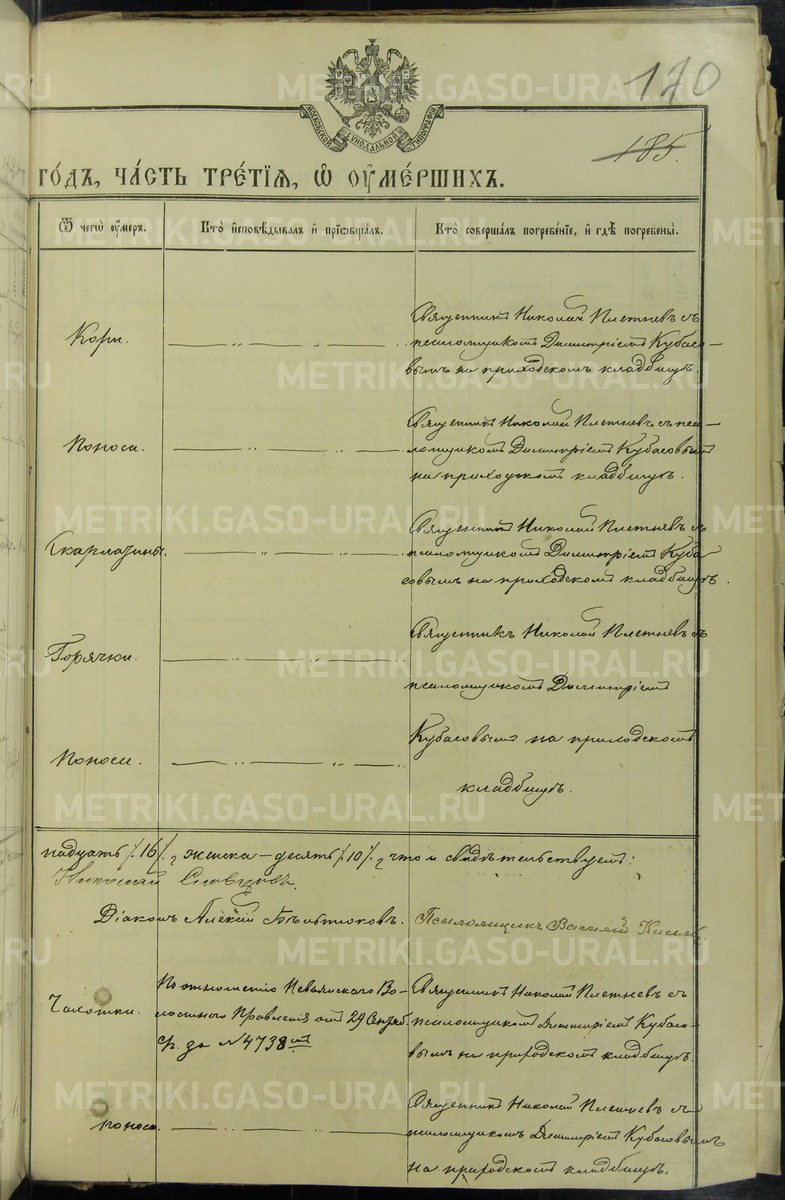 170
185.
МОСКОВСКОЙ СѴНОДАЛЬНОЙ ТИПОГРАФІИ
го́дъ, ча́сть тре́тїѧ, ѡ҆ ᲂу҆ме́ршихъ.
Ѿ чегѡ̀ ᲂу҆́меръ.
Кто̀ и҆сповѣ́дывалъ и҆ прїѡбща́лъ.
Кто̀ соверша́лъ погребе́нїе, и҆ гдѣ̀ погребены̀.
Кори.
Священникъ Николай Плетневъ съ
псаломщикомъ Димитріемъ Кубасо-
вымъ на приходскомъ кладбищѣ.
Поноса.
Священникъ Николай Плетневъ съ пса-
ломщикомъ Димитріемъ Кубасовымъ
на приходскомъ кладбищѣ.
Скарлатины.
Священникъ Николай Плетневъ съ
псаломщикомъ Димитріемъ Куба
совымъ на приходскомъ кладбищѣ.
Горячки.
Священникъ Николай Плетневъ съ
псаломщикомъ Димитріемъ
Поноса.
Кубасовымъ на приходскомъ
кладбищѣ.
надцать /16/, женска – десять /10/, что и свидѣтельствуемъ:
Николай
Діаконъ Алексій Псаломщикъ Василій
Чахотки.
По отношенію Невьянскаго Во-
лостного Правленія отъ 29 Сентяб.
за №4738мъ
Священникъ Николай Плетневъ съ
псаломщикомъ Димитріемъ Кубасо-
вымъ на приходскомъ кладбищѣ.
поноса.
Священникъ Николай Плетневъ съ
псаломщикомъ Димитріемъ Кубасовымъ
на приходскомъ кладбищѣ.
METRIKI.GASO-URAL.RU